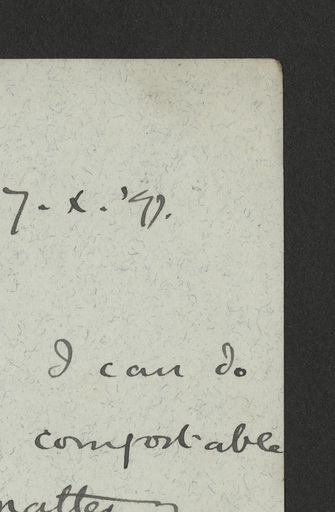 7. X. '97.
I can do
comfortable
matter